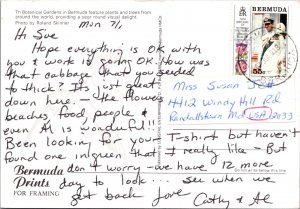 7n Botanical Gardens in Bermuda feature plants and trees from
around the world, providing a year round visual delight.
Photo by Roland Skinner
Mon 7/1
Hi Sue
Hope everything is OK with
you & work is going OK. How was
that cabbage that you seeded
to thick? It's just great
down here. - the flowers
beaches, food, people &
even Al is wonderful!!
Been looking for your
found one in green that
don't worry - we have 12 more
day to look... see when we
get back Love
Cathy & Al
Bermuda
Prints
FOR FRAMING
BERMUDA
55c
Miss Susan
#412 Windy Hill Rd
Randallstown Md
USA 21133
T-shirt but haven't
I really like - But